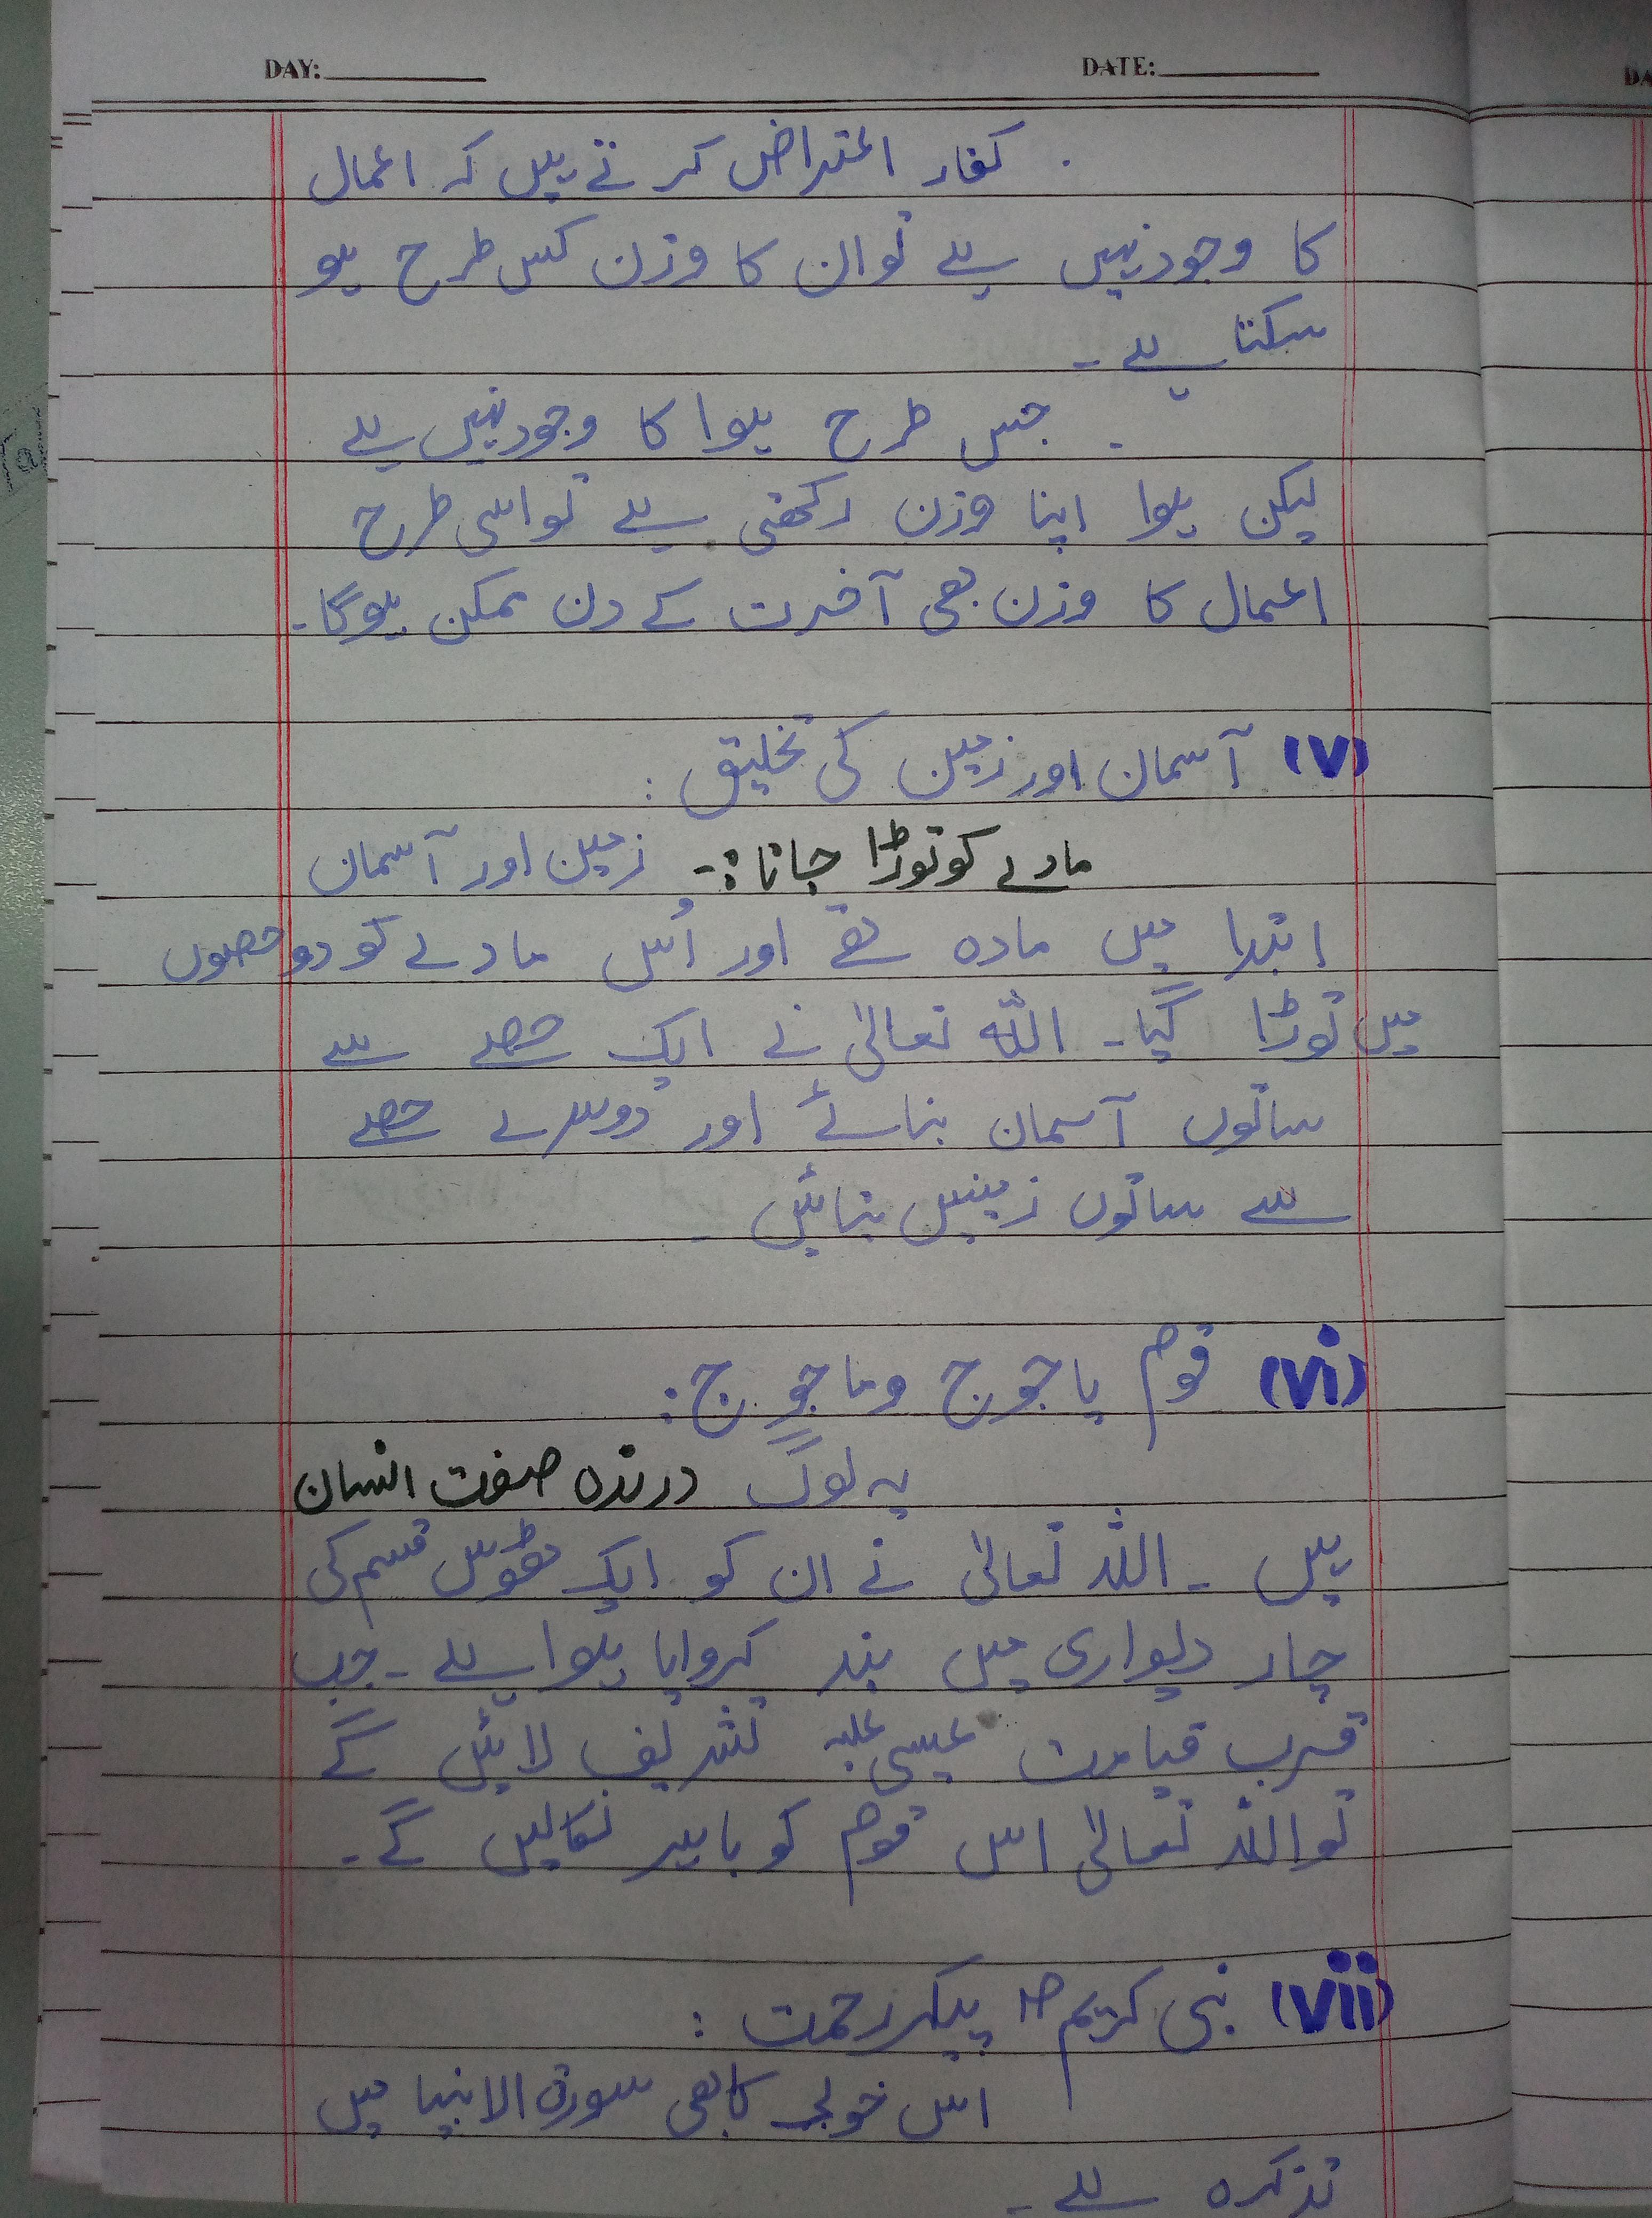 DAY: DATE:
کفار اعتراض کرتے ہیں کہ اعمال
کا وجود نہیں ہے تو ان کا وزن کس طرح ہو
سکتا ہے۔
جس طرح ہوا کا وجود نہیں ہے
لیکن ہوا اپنا وزن رکھتی ہے تو اسی طرح
اعمال کا وزن بھی آخرت کے دن ممکن ہوگا۔
(v) آسمان اور زمین کی تخلیق:
مادے کو توڑا جانا:- زمین اور آسمان
ابتدا میں مادہ تھے اور اُس مادے کو دو حصوں
میں توڑا گیا۔ اللہ تعالیٰ نے ایک حصے سے
ساتوں آسمان بنائے اور دوسرے حصے
سے ساتوں زمینیں بنائیں۔
(vi) قوم یاجوج وماجوج:
یہ لوگ درندہ صفت انسان
ہیں۔ اللہ تعالیٰ نے ان کو ایک ٹھوس قسم کی
چار دیواری میں بند کروایا ہوا ہے۔ جب
قرب قیامت عیسیٰ علیہ تشریف لائیں گے
تو اللہ تعالیٰ اس قوم کو باہر نکالیں گے۔
(vii) نبی کریم ﷺ پیکر رحمت:
اس خوبی کا بھی سورۃ الانبیا میں
تذکرہ ہے۔